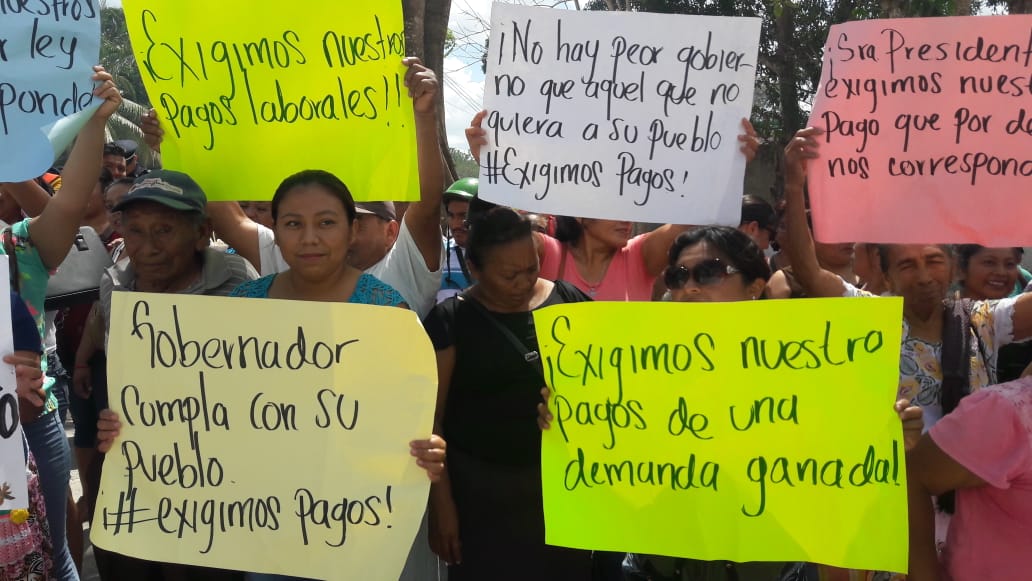 ley
ponde
¡Exigimos nuestros
pagos laborales!!
¡No hay peor gobier-
no que aquel que no
quiera a su pueblo
#Exigimos Pagos!
¡Sra President
exigimos nuest
Pago que por de
nos correspond
Gobernador
Cumpla con su
pueblo.
¡#exigimos pagos!
¡Exigimos nuestro
pagos de una
demanda ganada!